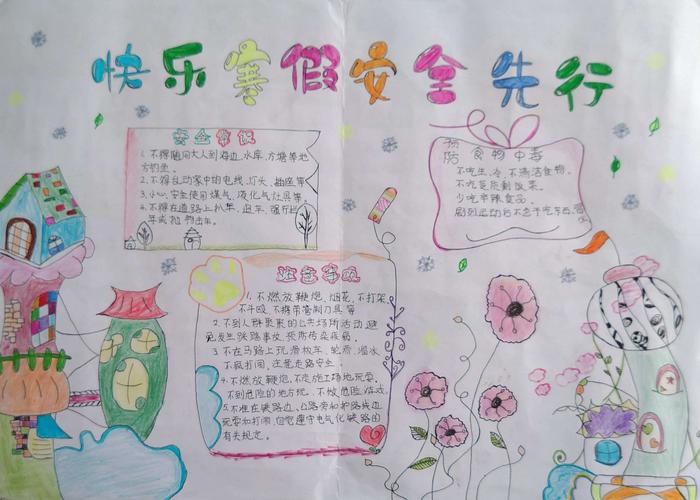 快乐寒假安全先行
安全常识
1.不得随同大人到海边、水库、方塘等地
方钓鱼。
2.不得乱动家中的电线、灯头、插座等
3.小心、安全使用煤气、液化气灶具等。
4.不得在道路上扒车、追车、强行拦
车或抛物击车。
预防
食物中毒
不吃生、冷、不清洁食物。
不吃变质剩饭菜。
少吃辛辣食品。
剧烈运动后不急于吃东西
注意事项
1、不燃放鞭炮、烟花、不打架
不斗殴、不携带管制刀具等
2.不到人群聚集的公共场所活动避
免发生踩踏事故、预防传染疾病。
3、不在马路上玩滑板车、轮滑、溜冰
不疯打闹、注意走路安全
4.不燃放鞭炮、不是施工场地玩耍、
不到危险的地方玩、不做危险游戏
5.不准在铁路边、公路旁和护路线边
玩耍和打闹、自觉遵守电气化铁路的
有关规定。